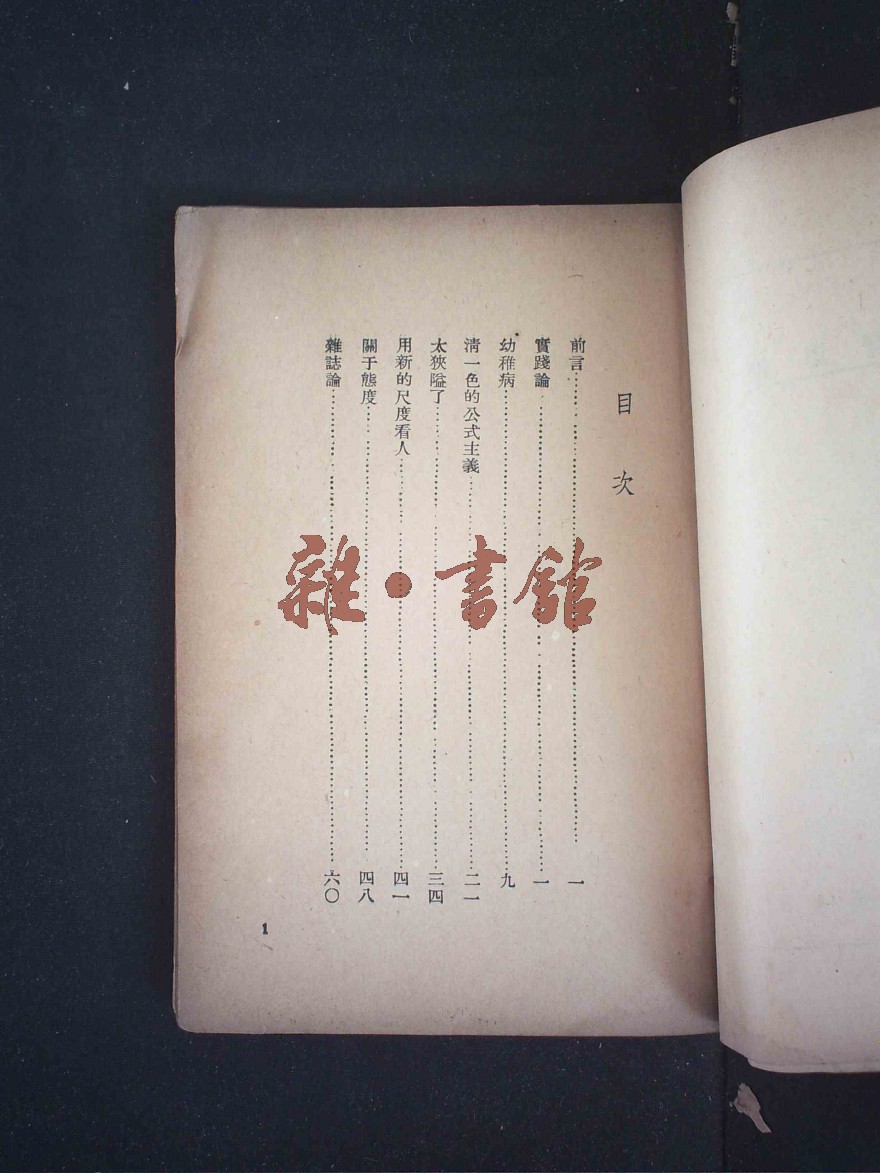 目次
前言……………………一
實踐論……………………一
幼稚病……………………九
清一色的公式主義……………………二一
太狹隘了……………………三四
用新的尺度看人……………………四一
關于態度……………………四八
雜誌論……………………六〇
1
雜·書館